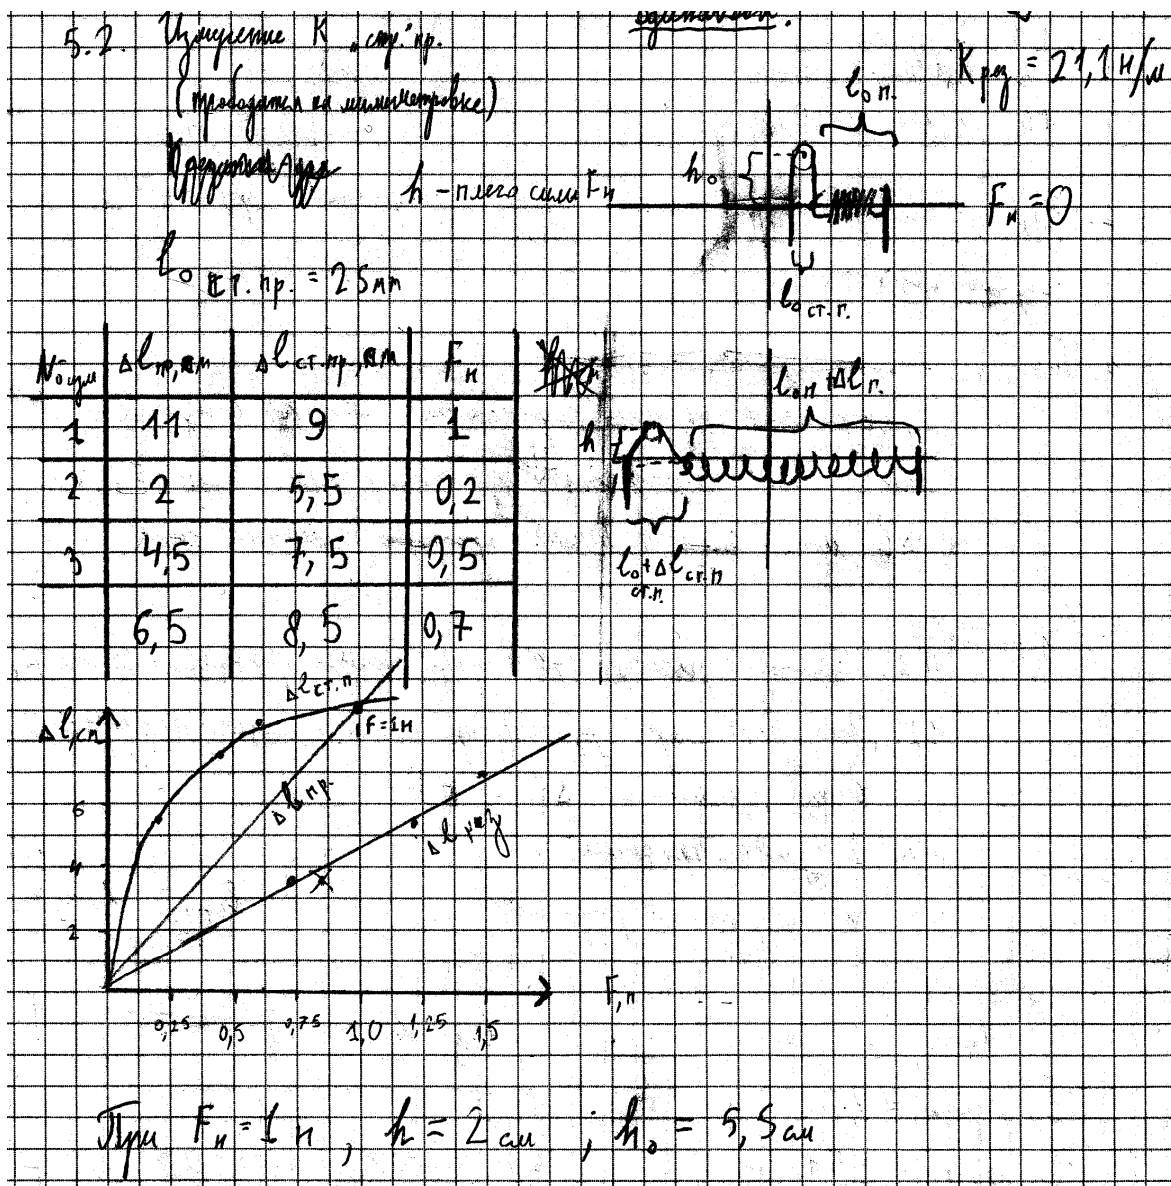 5.2. Измерение К „стр." пр.
(проводятся на миллиметровке)
К рез = 21,1 Н/м
h – плечо силы Fн
l₀ п.
h₀
Fн = 0
l₀ ст.п.
l₀ ст.пр. = 25мм
№ изм Δl пр, см Δl ст.пр, см Fн
1 11 9 1
2 2 5,5 0,2
3 4,5 7,5 0,5
6,5 8,5 0,7
l₀п + Δl п.
h
l₀ + Δl ст.п
ст.п.
Δl ст.п
Δl, см
F=1н
Δl пр.
Δl рез
6
4
2
F, н
0,25 0,5 0,75 1,0 1,25 1,5
При Fн = 1 н , h = 2 см ; h₀ = 5,5 см